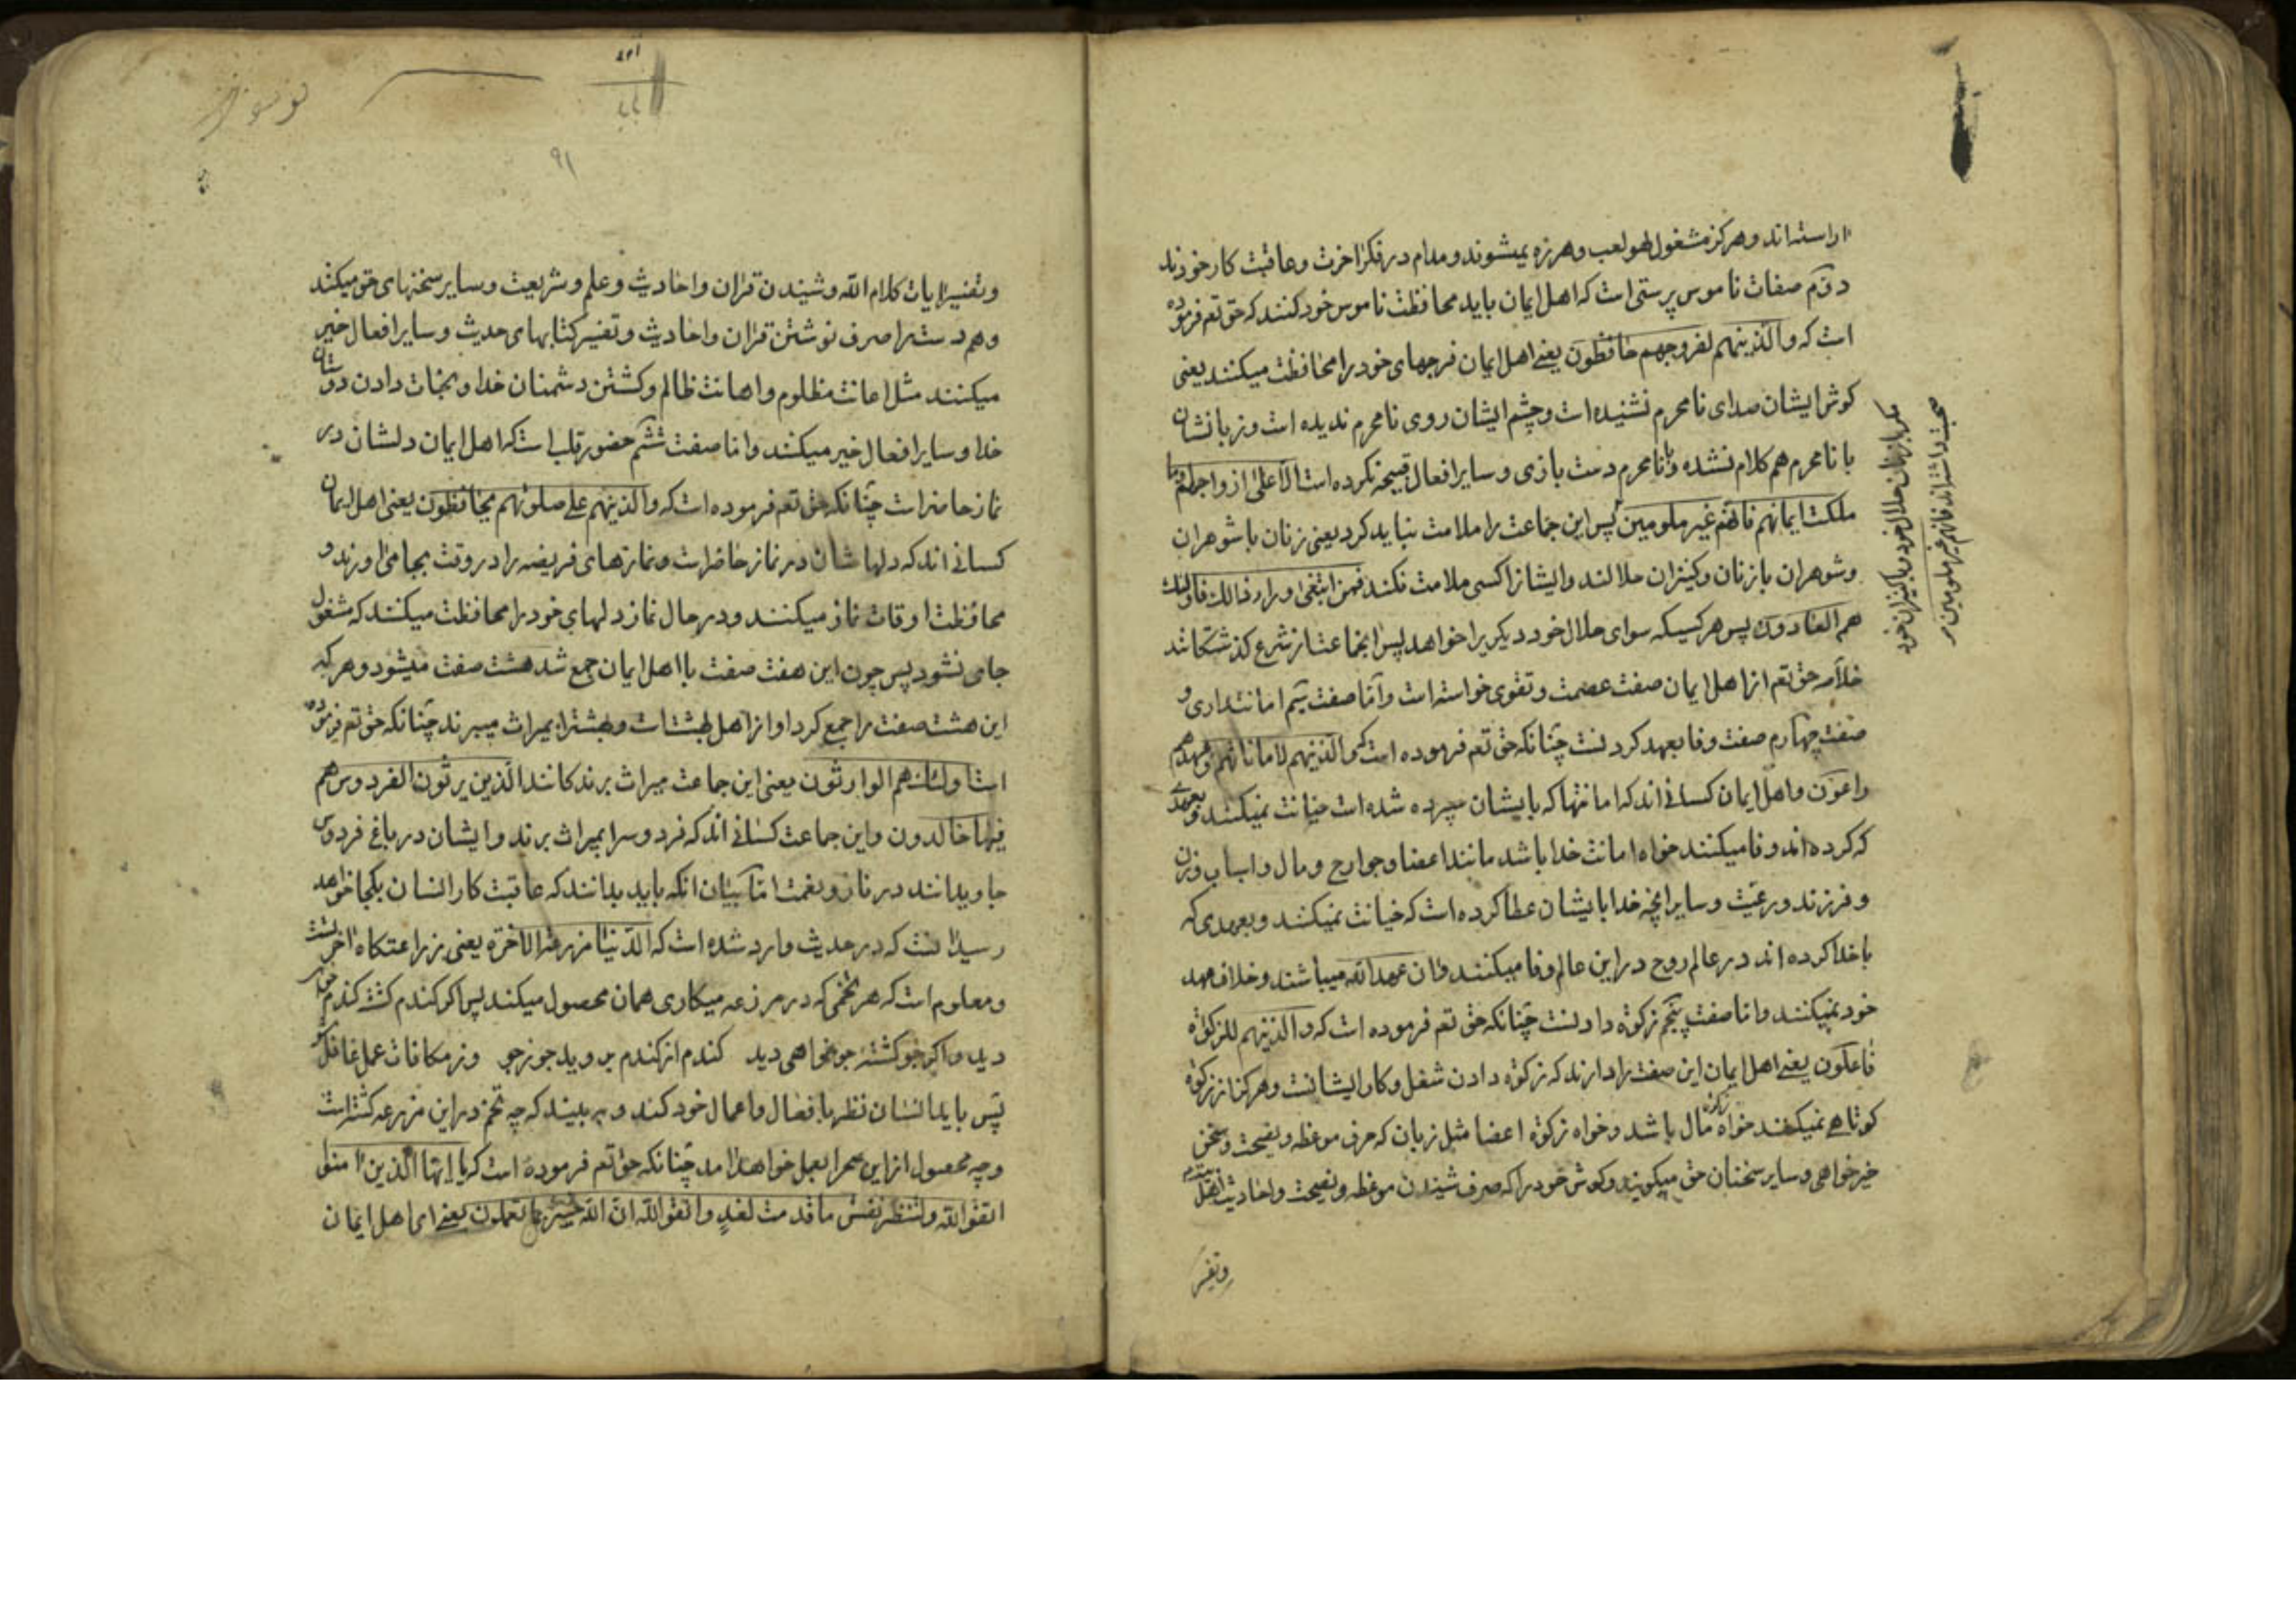 اراسته اند و هرکز مشغول لهو لعب و هرزه نمیشوند و مدام در فکر اخرت و عاقبت کار خودند
دوم صفات ناموس پرستی است که اهل ایمان باید محافظت ناموس خود کنند که حق تعم فرموده
است که والذینهم لفروجهم حافظون یعنے اهل ایمان فرجهای خود را محافظت میکنند یعنی
کوش ایشان صدای نامحرم نشنیده است و چشم ایشان روی نامحرم ندیده است و زبانشان
با نامحرم هم کلام نشده و با نامحرم دست بازی و سایر افعال قبیحه نکرده است الا علی ازواجهم او ما
ملکت ایمانهم فانهم غیر ملومین پس این جماعت را ملامت نباید کرد یعنی زنان با شوهران
و شوهران با زنان و کنیزان حلالند و ایشانرا کسی ملامت نکند فمن ابتغی وراء ذالک فاولئک
هم العادون پس هر کسیکه سوای حلال خود دیکریرا خواهد پس انجماعت از شرع کذشتکانند
خلاصه حق تعم از اهل ایمان صفت عصمت و تقوی خواسته است و اما صفت سیم امانتداری و
صفت چهارم صفت وفا بعهد کردنست چنانکه حق تعم فرموده است که والذینهم لاماناتهم وعهدهم
راعون و اهل ایمان کسانے اند که امانتها که بایشان سپرده شده است خیانت نمیکنند و بعهدی
که کرده اند وفا میکنند خواه امانت خدا باشد مانند اعضا و جوارح و مال و اسباب و زن
و فرزند و رعیت و سایر انچه خدا بایشان عطا کرده است که خیانت نمیکنند و بعهدی که
با خدا کرده اند در عالم روح در این عالم وفا میکنند و ان عهد الله میباشند و خلاف عهد
خود نمیکنند و اما صفت پنجم زکوة دادنست چنانکه حق تعم فرموده است که والذینهم للزکوة
فاعلون یعنے اهل ایمان این صفت را دارند که زکوة دادن شغل و کار ایشانست و هرکز از زکوة
کوتاهے نمیکنند خواه زکوة مال باشد و خواه زکوة اعضا مثل زبان که حرف موعظه و نصیحت و سخن
خیرخواهی و سایر سخنان حق میکویند و کوش خود را که صرف شنیدن موعظه و نصیحت و احادیث
وتفسیر
با زنان حلال خود و با کنیزان خود
صحبت داشته اند فانهم غیر ملومین
۹۱
و تفسیر ایات کلام الله و شنیدن قران و احادیث و علم و شریعت و سایر سخنهای حق میکنند
و هم دست را صرف نوشتن قران و احادیث و تفسیر کتابهای حدیث و سایر افعال خیر
میکنند مثل اعانت مظلوم و اهانت ظالم و کشتن دشمنان خدا و نجات دادن دوستان
خدا و سایر افعال خیر میکنند و اما صفت ششم حضور قلب است که اهل ایمان دلشان در
نماز حاضر است چنانکه حق تعم فرموده است که والذینهم علے صلوتهم یحافظون یعنی اهل ایمان
کسانے اند که دلهاشان در نماز حاضر است و نمازهای فریضه را در وقت بجا می اورند و
محافظت اوقات نماز میکنند و در حال نماز دلهای خود را محافظت میکنند که مشغول
جامی نشود پس چون این هفت صفت با اهل ایمان جمع شد هشت صفت میشود و هر که
این هشت صفت را جمع کرد او از اهل بهشت است و بهشت را بمیراث میبرند چنانکه حق تعم فرموده
است اولئک هم الوارثون یعنی این جماعت میراث برندکانند الذین یرثون الفردوس هم
فیها خالدون و این جماعت کسانے اند که فردوس را بمیراث برند و ایشان در باغ فردوس
جاویدانند در ناز و نعمت اما بیان انکه باید بدانند که عاقبت کار انسان بکجا خواهد
رسید انست که در حدیث وارد شده است که الدنیا مزرعة الاخرة یعنی زراعتکاه اخرتست
و معلوم است که هر تخمی که در مزرعه میکاری همان محصول میکند پس اکر کندم کشته کندم خواهی
دید و اکر جو کشتهٔ جو خواهی دید کندم از کندم بروید جو ز جو وز مکافات عمل غافل مشو
پس باید انسان نظر با فعال و اعمال خود کند و به بیند که چه تخم در این مزرعه کشته است
و چه محصول از این صحرا بعمل خواهد امد چنانکه حق تعم فرموده است که یا ایها الذین امنوا
اتقوا الله ولتنظر نفس ما قدمت لغد واتقوا الله ان الله خبیر بما تعملون یعنے ای اهل ایمان